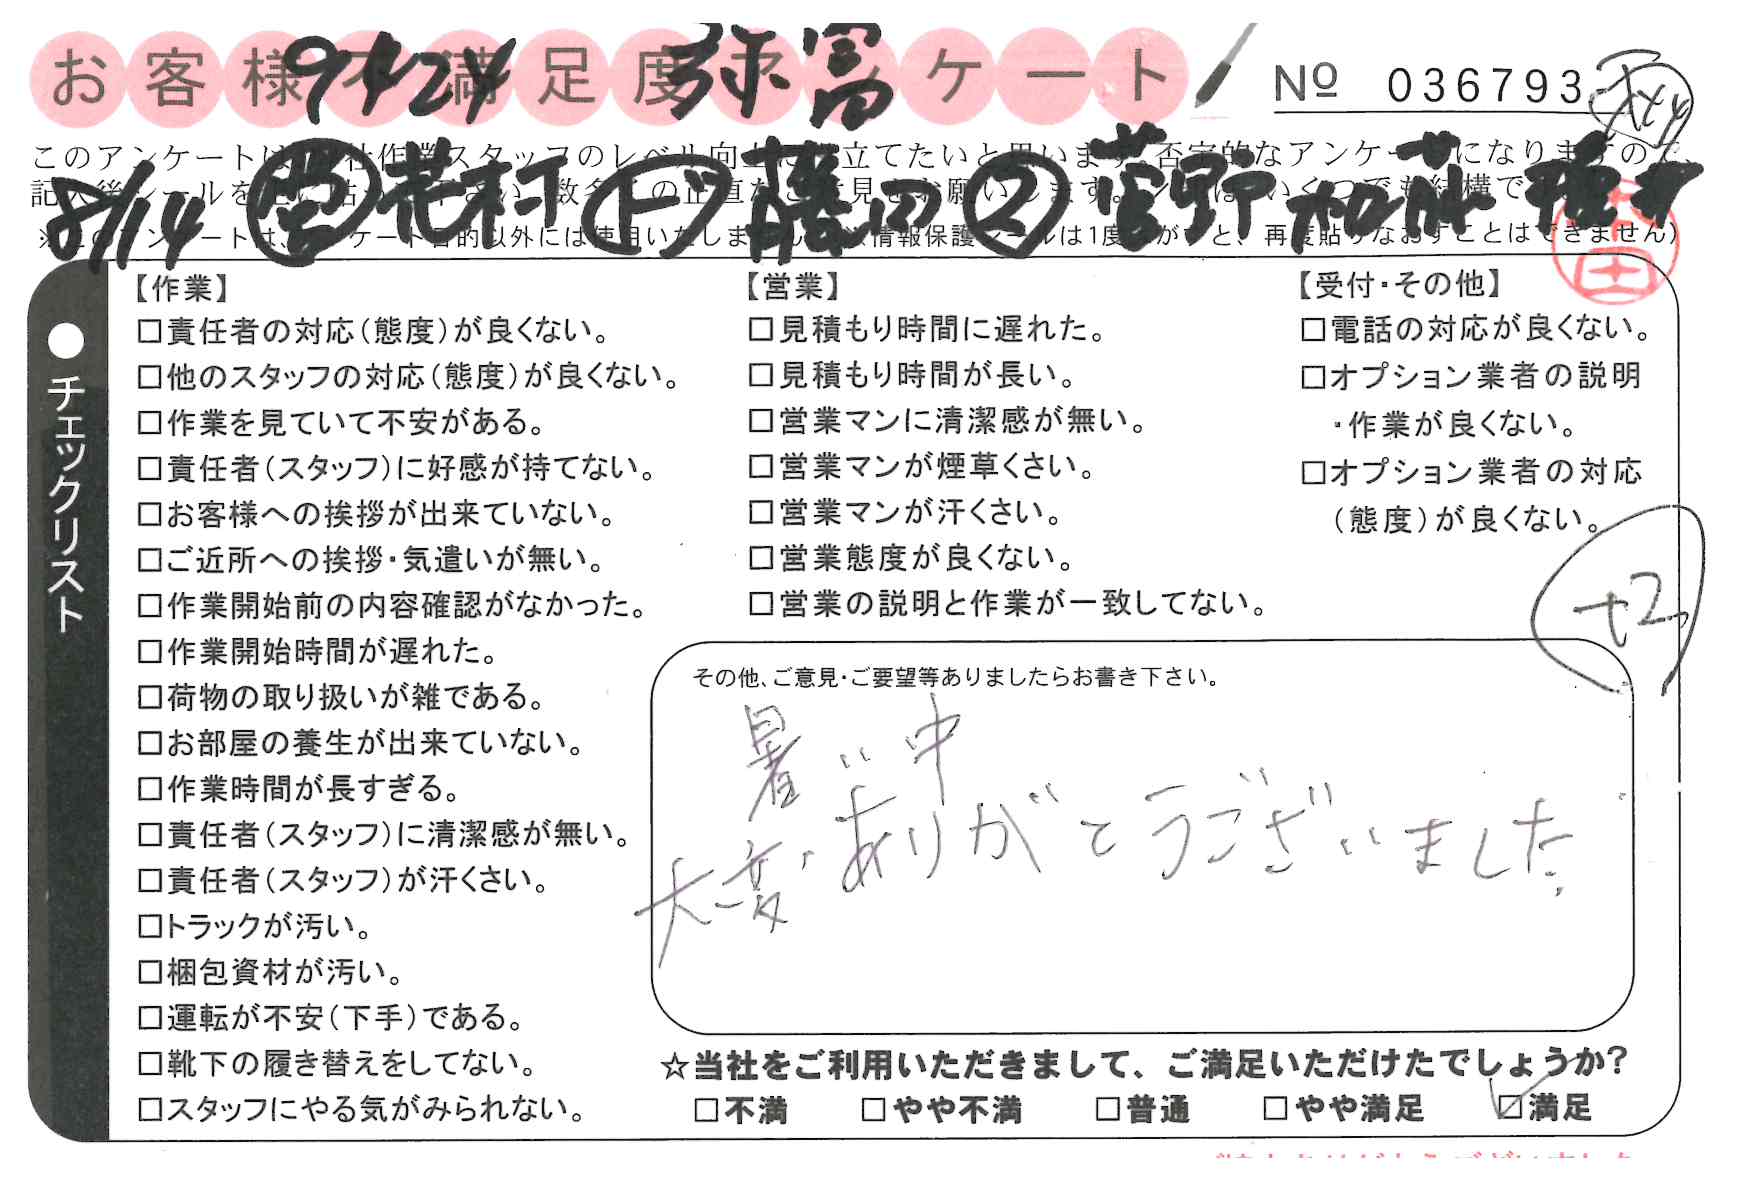 お客様不満足度アンケート
9124 弥富
Nº 036793
このアンケートは 社作業スタッフのレベル向上に 立てたいと思います。否定的なアンケートになりますので、
記入後シールを 数多くの正直なご意見をお願いします。 いくつでも結構です
8/14 営 老村 ド 藤田 2 菅野 加藤
※このアンケートは、アンケート目的以外には使用いたしません 情報保護シールは1度 がすと、再度貼りなおすことはできません)
●チェックリスト
【作業】
□責任者の対応(態度)が良くない。
□他のスタッフの対応(態度)が良くない。
□作業を見ていて不安がある。
□責任者(スタッフ)に好感が持てない。
□お客様への挨拶が出来ていない。
□ご近所への挨拶・気遣いが無い。
□作業開始前の内容確認がなかった。
□作業開始時間が遅れた。
□荷物の取り扱いが雑である。
□お部屋の養生が出来ていない。
□作業時間が長すぎる。
□責任者(スタッフ)に清潔感が無い。
□責任者(スタッフ)が汗くさい。
□トラックが汚い。
□梱包資材が汚い。
□運転が不安(下手)である。
□靴下の履き替えをしてない。
□スタッフにやる気がみられない。
【営業】
□見積もり時間に遅れた。
□見積もり時間が長い。
□営業マンに清潔感が無い。
□営業マンが煙草くさい。
□営業マンが汗くさい。
□営業態度が良くない。
□営業の説明と作業が一致してない。
【受付・その他】
□電話の対応が良くない。
□オプション業者の説明
・作業が良くない。
□オプション業者の対応
(態度)が良くない。
その他、ご意見・ご要望等ありましたらお書き下さい。
暑い中
大変ありがとうございました。
☆当社をご利用いただきまして、ご満足いただけたでしょうか?
□不満 □やや不満 □普通 □やや満足 ☑満足